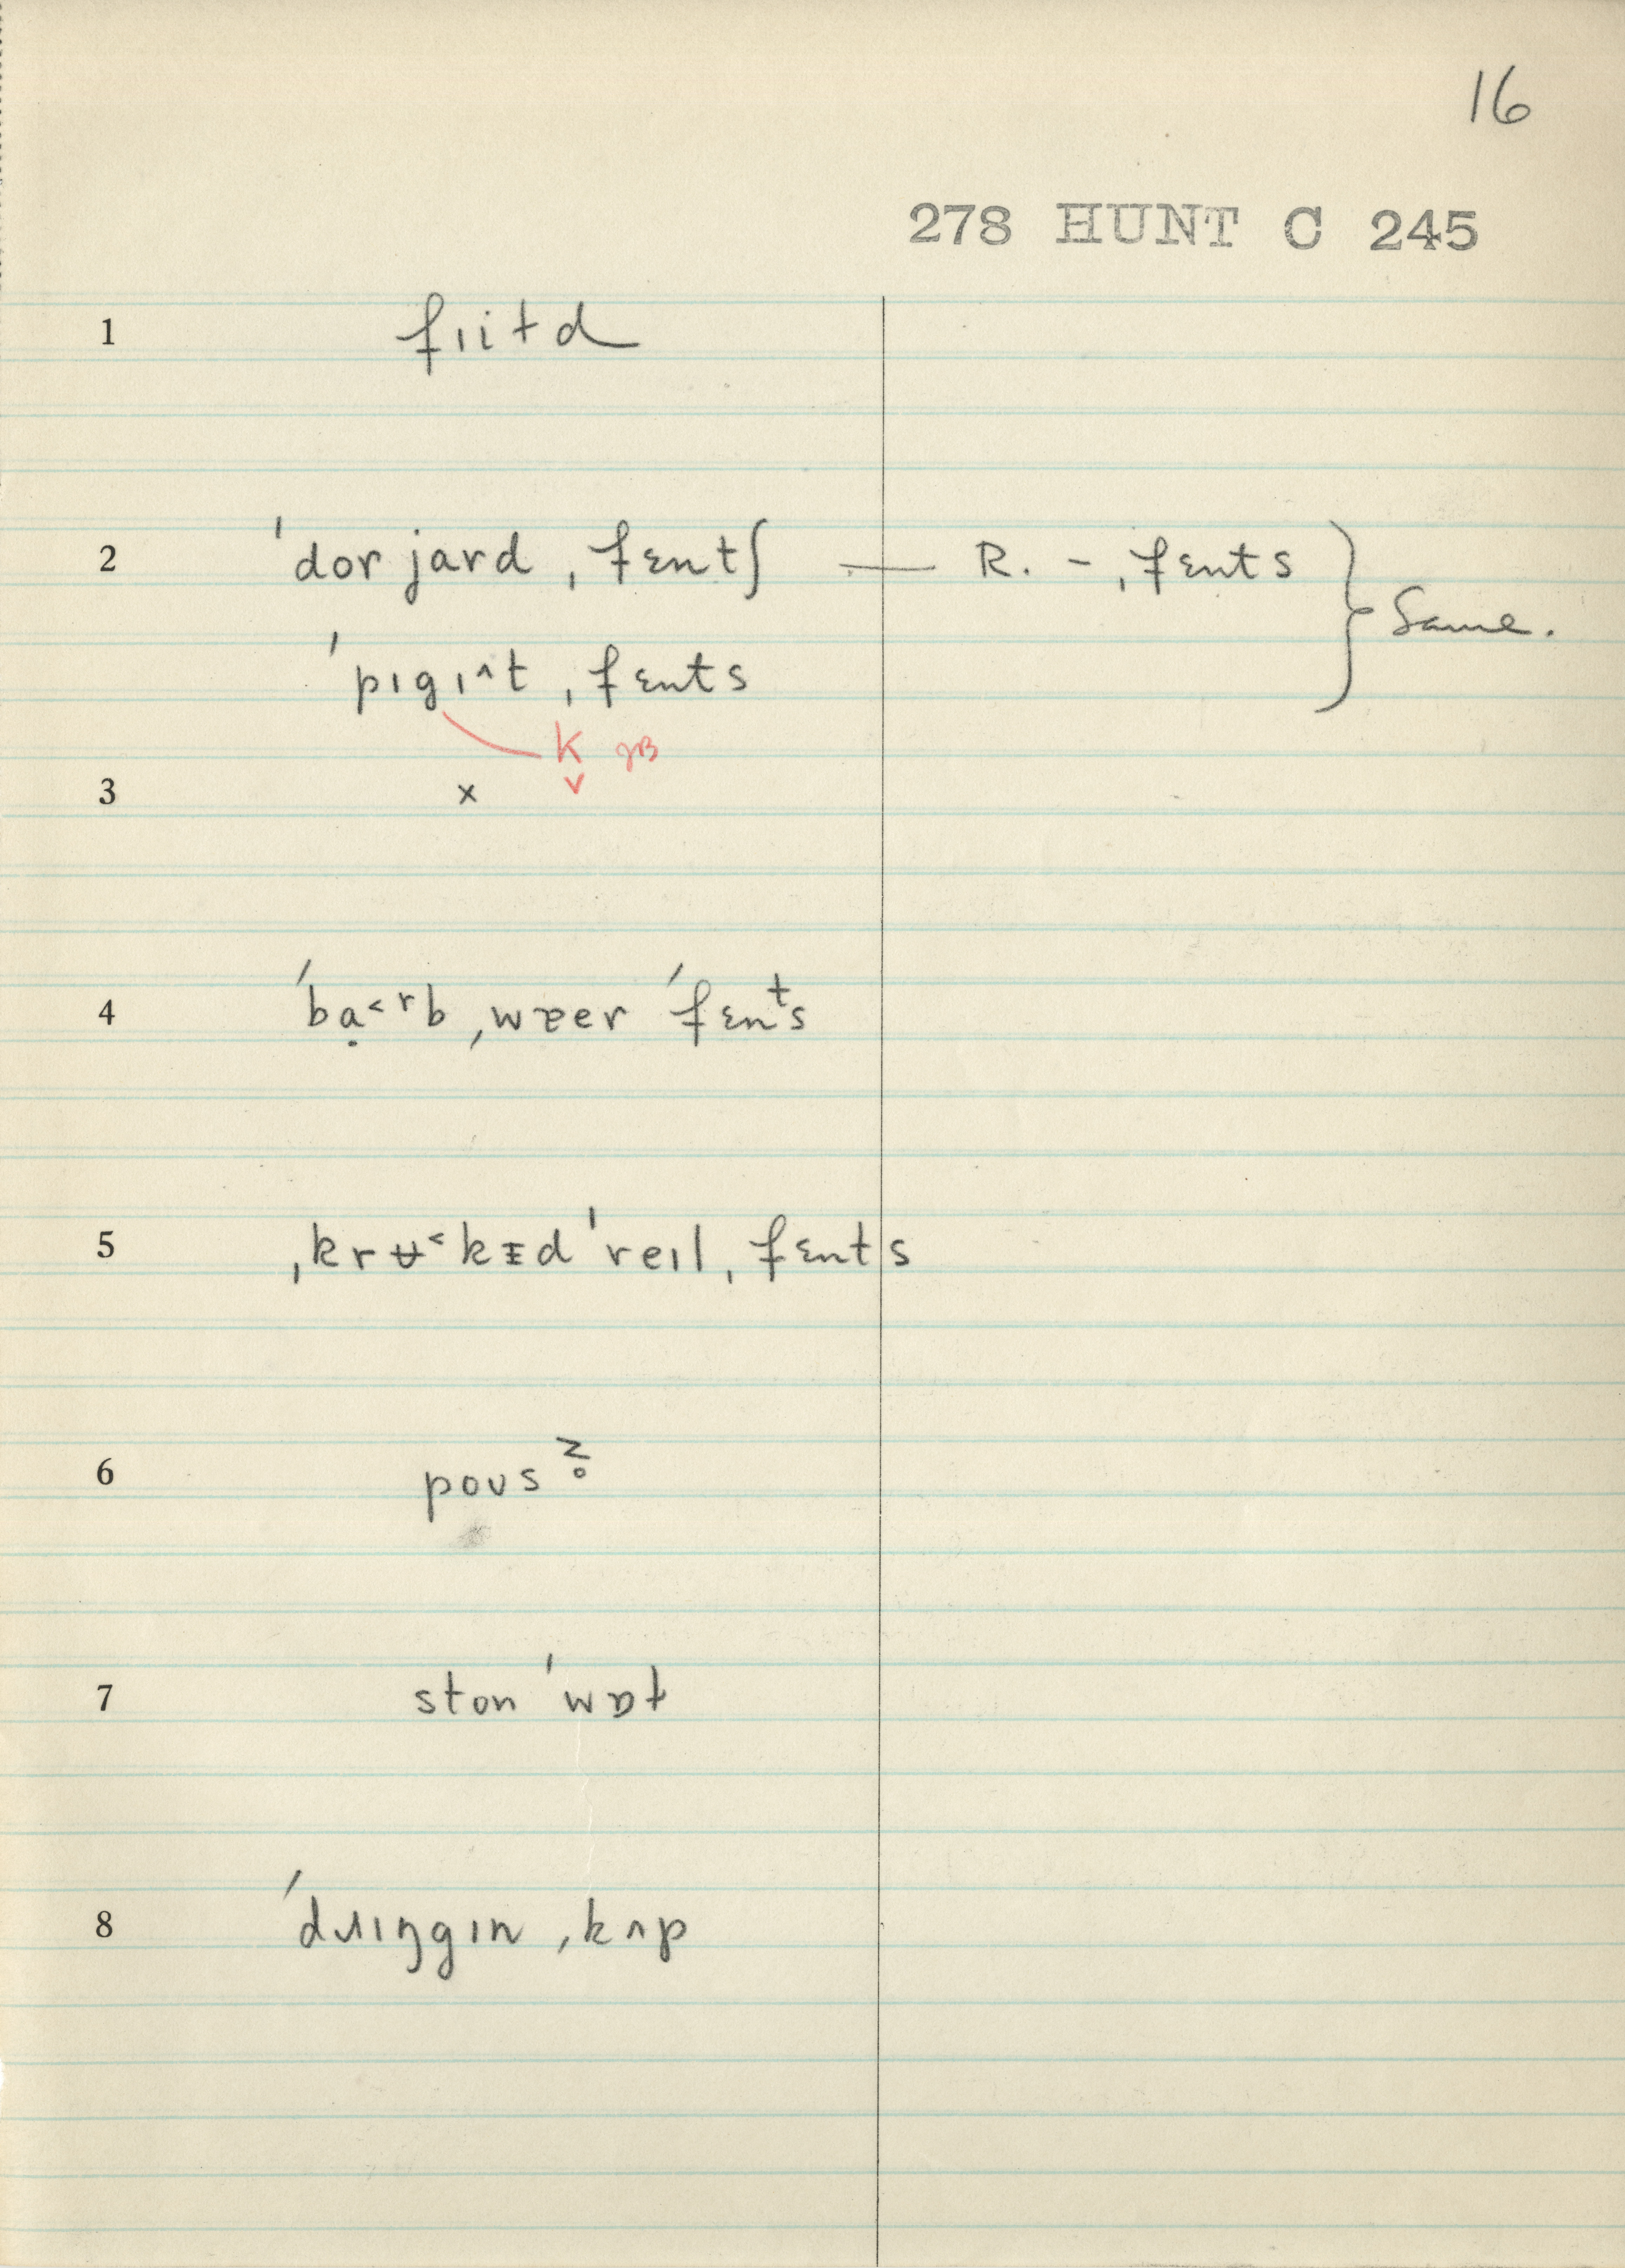 16
278 HUNT C 245
1 fɪitd
2 ˈdorjard ˌfɛntʃ — R. - ˌfɛnts } Same.
ˈpɪgɪ^t ˌfɛnts
K
v
3 x
4 ˈbạ<ʳb ˌwɐer ˈfɛnᵗs
5 ˌkrʉ<kᵻd ˈreɪl ˌfɛnts
6 poʊs z̥
7 ston ˈwɒɫ
8 ˈdɹɪŋgɪn ˌkʌp